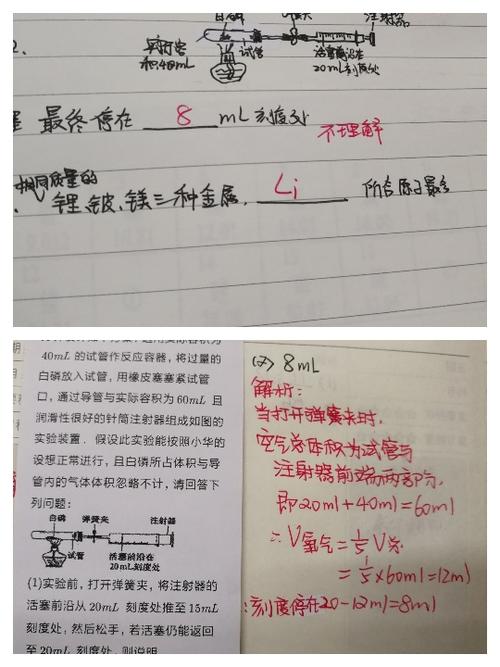 白磷
注射器
2.
实际容
积40ml
试管
活塞前沿在
20mL刻度处
最终停在 8 mL刻度处
不理解
相同质量的
锂、铍、镁三种金属, Li 所含原子最多
40mL 的试管作反应容器，将过量的
白磷放入试管，用橡皮塞塞紧试管
口，通过导管与实际容积为60mL 且
润滑性很好的针筒注射器组成如图的
实验装置．假设此实验能按照小华的
设想正常进行，且白磷所占体积与导
管内的气体体积忽略不计，请回答下
列问题：
白磷 弹簧夹 注射器
试管
活塞前沿在
20mL刻度处
(1)实验前，打开弹簧夹，将注射器的
活塞前沿从 20mL 刻度处推至 15mL
刻度处，然后松手，若活塞仍能返回
至 20mL 刻度处，则说明
(2) 8mL
解析：
当打开弹簧夹时，
空气总体积为试管与
注射器前端两部分，
即20ml+40ml=60ml
∴V氧气=1/5V总
=1/5×60ml=12ml
∴刻度停在20-12ml=8ml